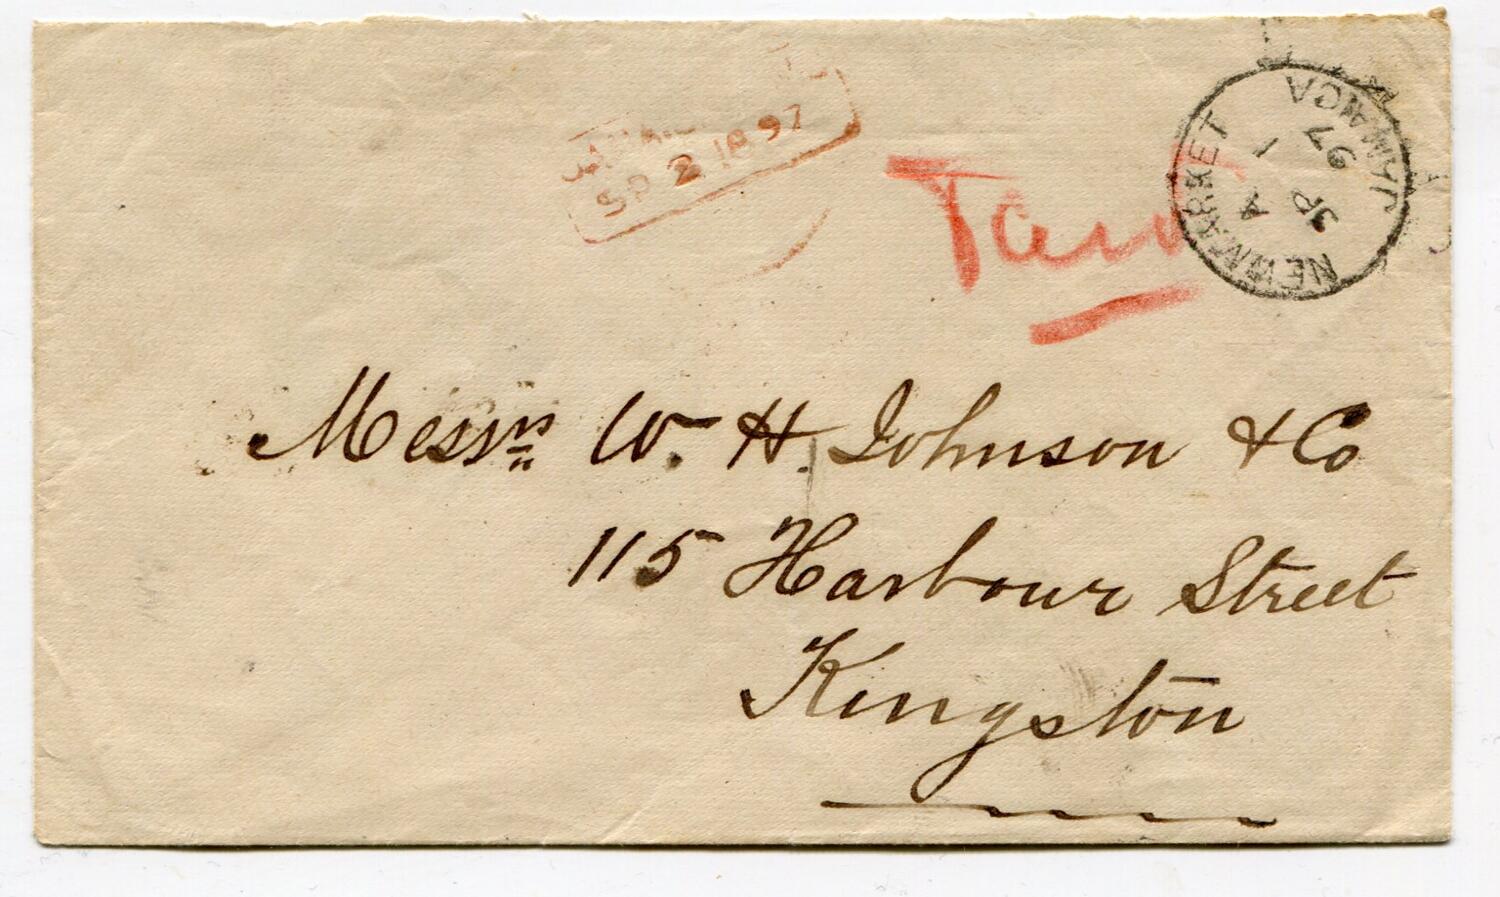 SP 2 1897
NEWMARKET JAMAICA
A
1
SP
97
Messrs W. H. Johnson & Co
115 Harbour Street
Kingston